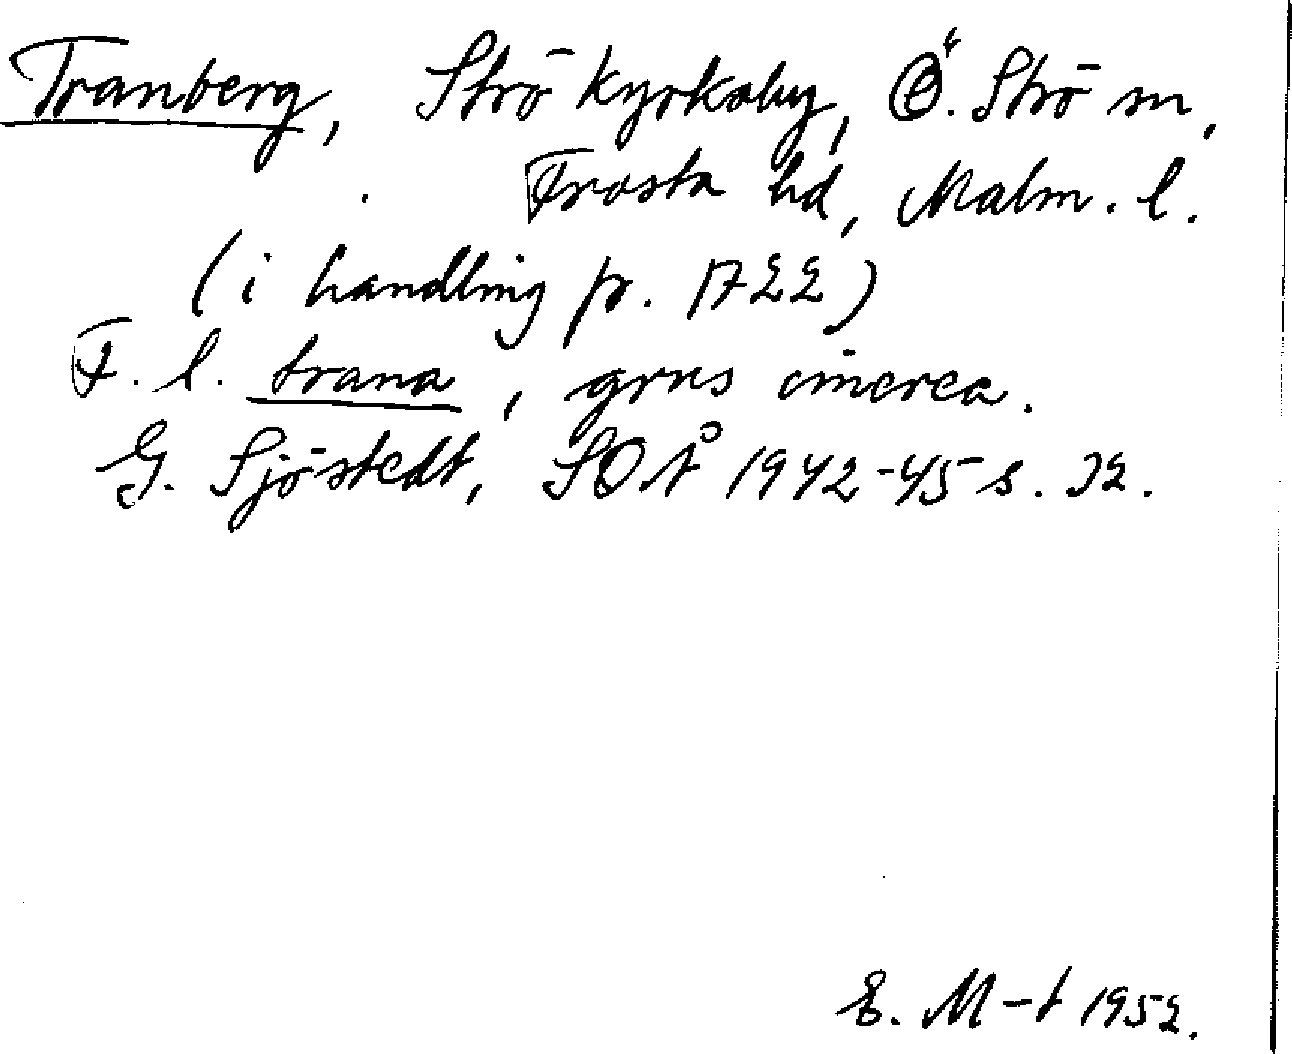 Tranberg, Strö kyrkoby, Ö. Strö sn,
Frosta hd, Malm. l.
(i handling fr. 1722)
F. l. trana, grus cinerea.
G. Sjöstedt, SOÅ 1942-45 s. 32.
E. M-t 1952.